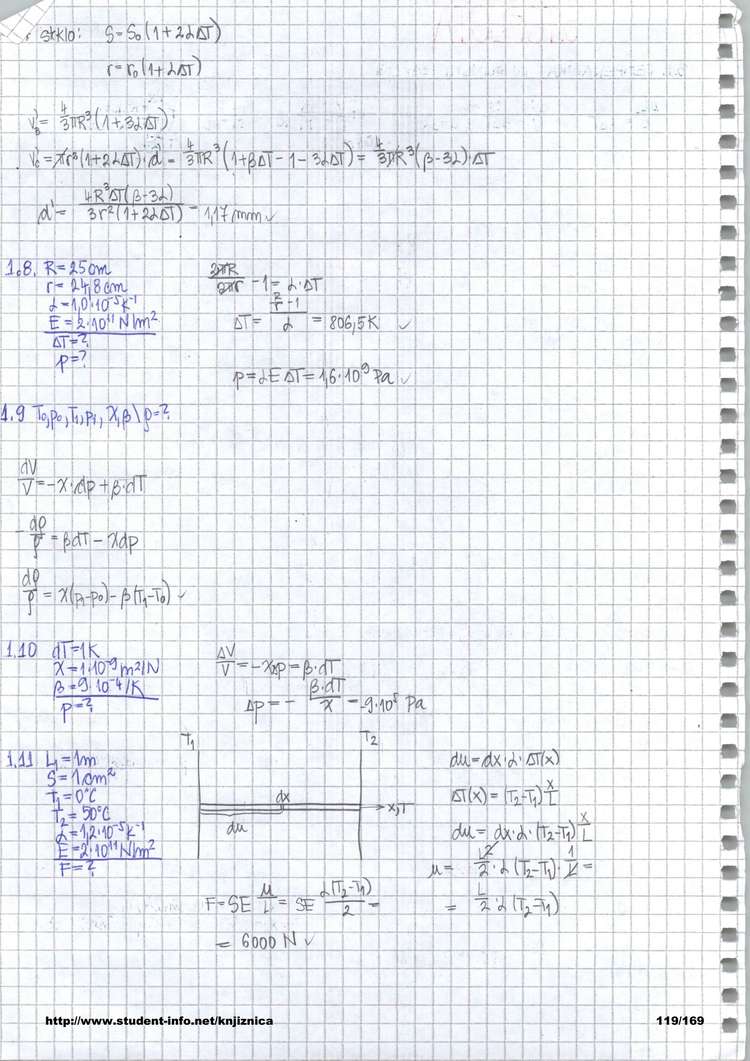 stklo: S=S₀(1+2αΔT)
r=r₀(1+αΔT)
V'B= 4/3 πR³(1+3αΔT)
V'c=πr²(1+2αΔT)·d' = 4/3 πR³(1+βΔT-1-3αΔT)= 4/3 πR³(β-3α)·ΔT
d'= 4R³ΔT(β-3α) / 3r²(1+2αΔT) = 1,17mm ✓
1.8. R=25cm
r=24,8cm
α=1,0·10⁻⁵K⁻¹
E=2·10¹¹N/m²
ΔT=?
p=?
2πR/2πr -1= α·ΔT
ΔT= (R/r -1)/α = 806,5K ✓
p=αEΔT=1,6·10⁹Pa ✓
1.9 T₀,p₀,T₁,p₁,χ,β \ ρ=?
dV/V=-χ·dp+β·dT
-dρ/ρ=βdT-χdp
dρ/ρ=χ(p₁-p₀)-β(T₁-T₀) ✓
1.10 dT=1K
χ=1·10⁻⁹m²/N
β=9·10⁻⁴/K
p=?
ΔV/V=-χΔp=β·dT
Δp=- β·dT/χ =-9·10⁵ Pa
1.11 L₁=1m
S=1cm²
T₁=0°C
T₂=50°C
α=1,2·10⁻⁵K⁻¹
E=2·10¹¹N/m²
F=?
T₁
T₂
dx
x,T
du
F=SE u/L = SE α(T₂-T₁)/2 =
= 6000N ✓
du=dx·α·ΔT(x)
ΔT(x)=(T₂-T₁) x/L
du=dx·α·(T₂-T₁) x/L
u= L²/2·α(T₂-T₁)·1/L=
= L/2·α(T₂-T₁)
http://www.student-info.net/knjiznica
119/169